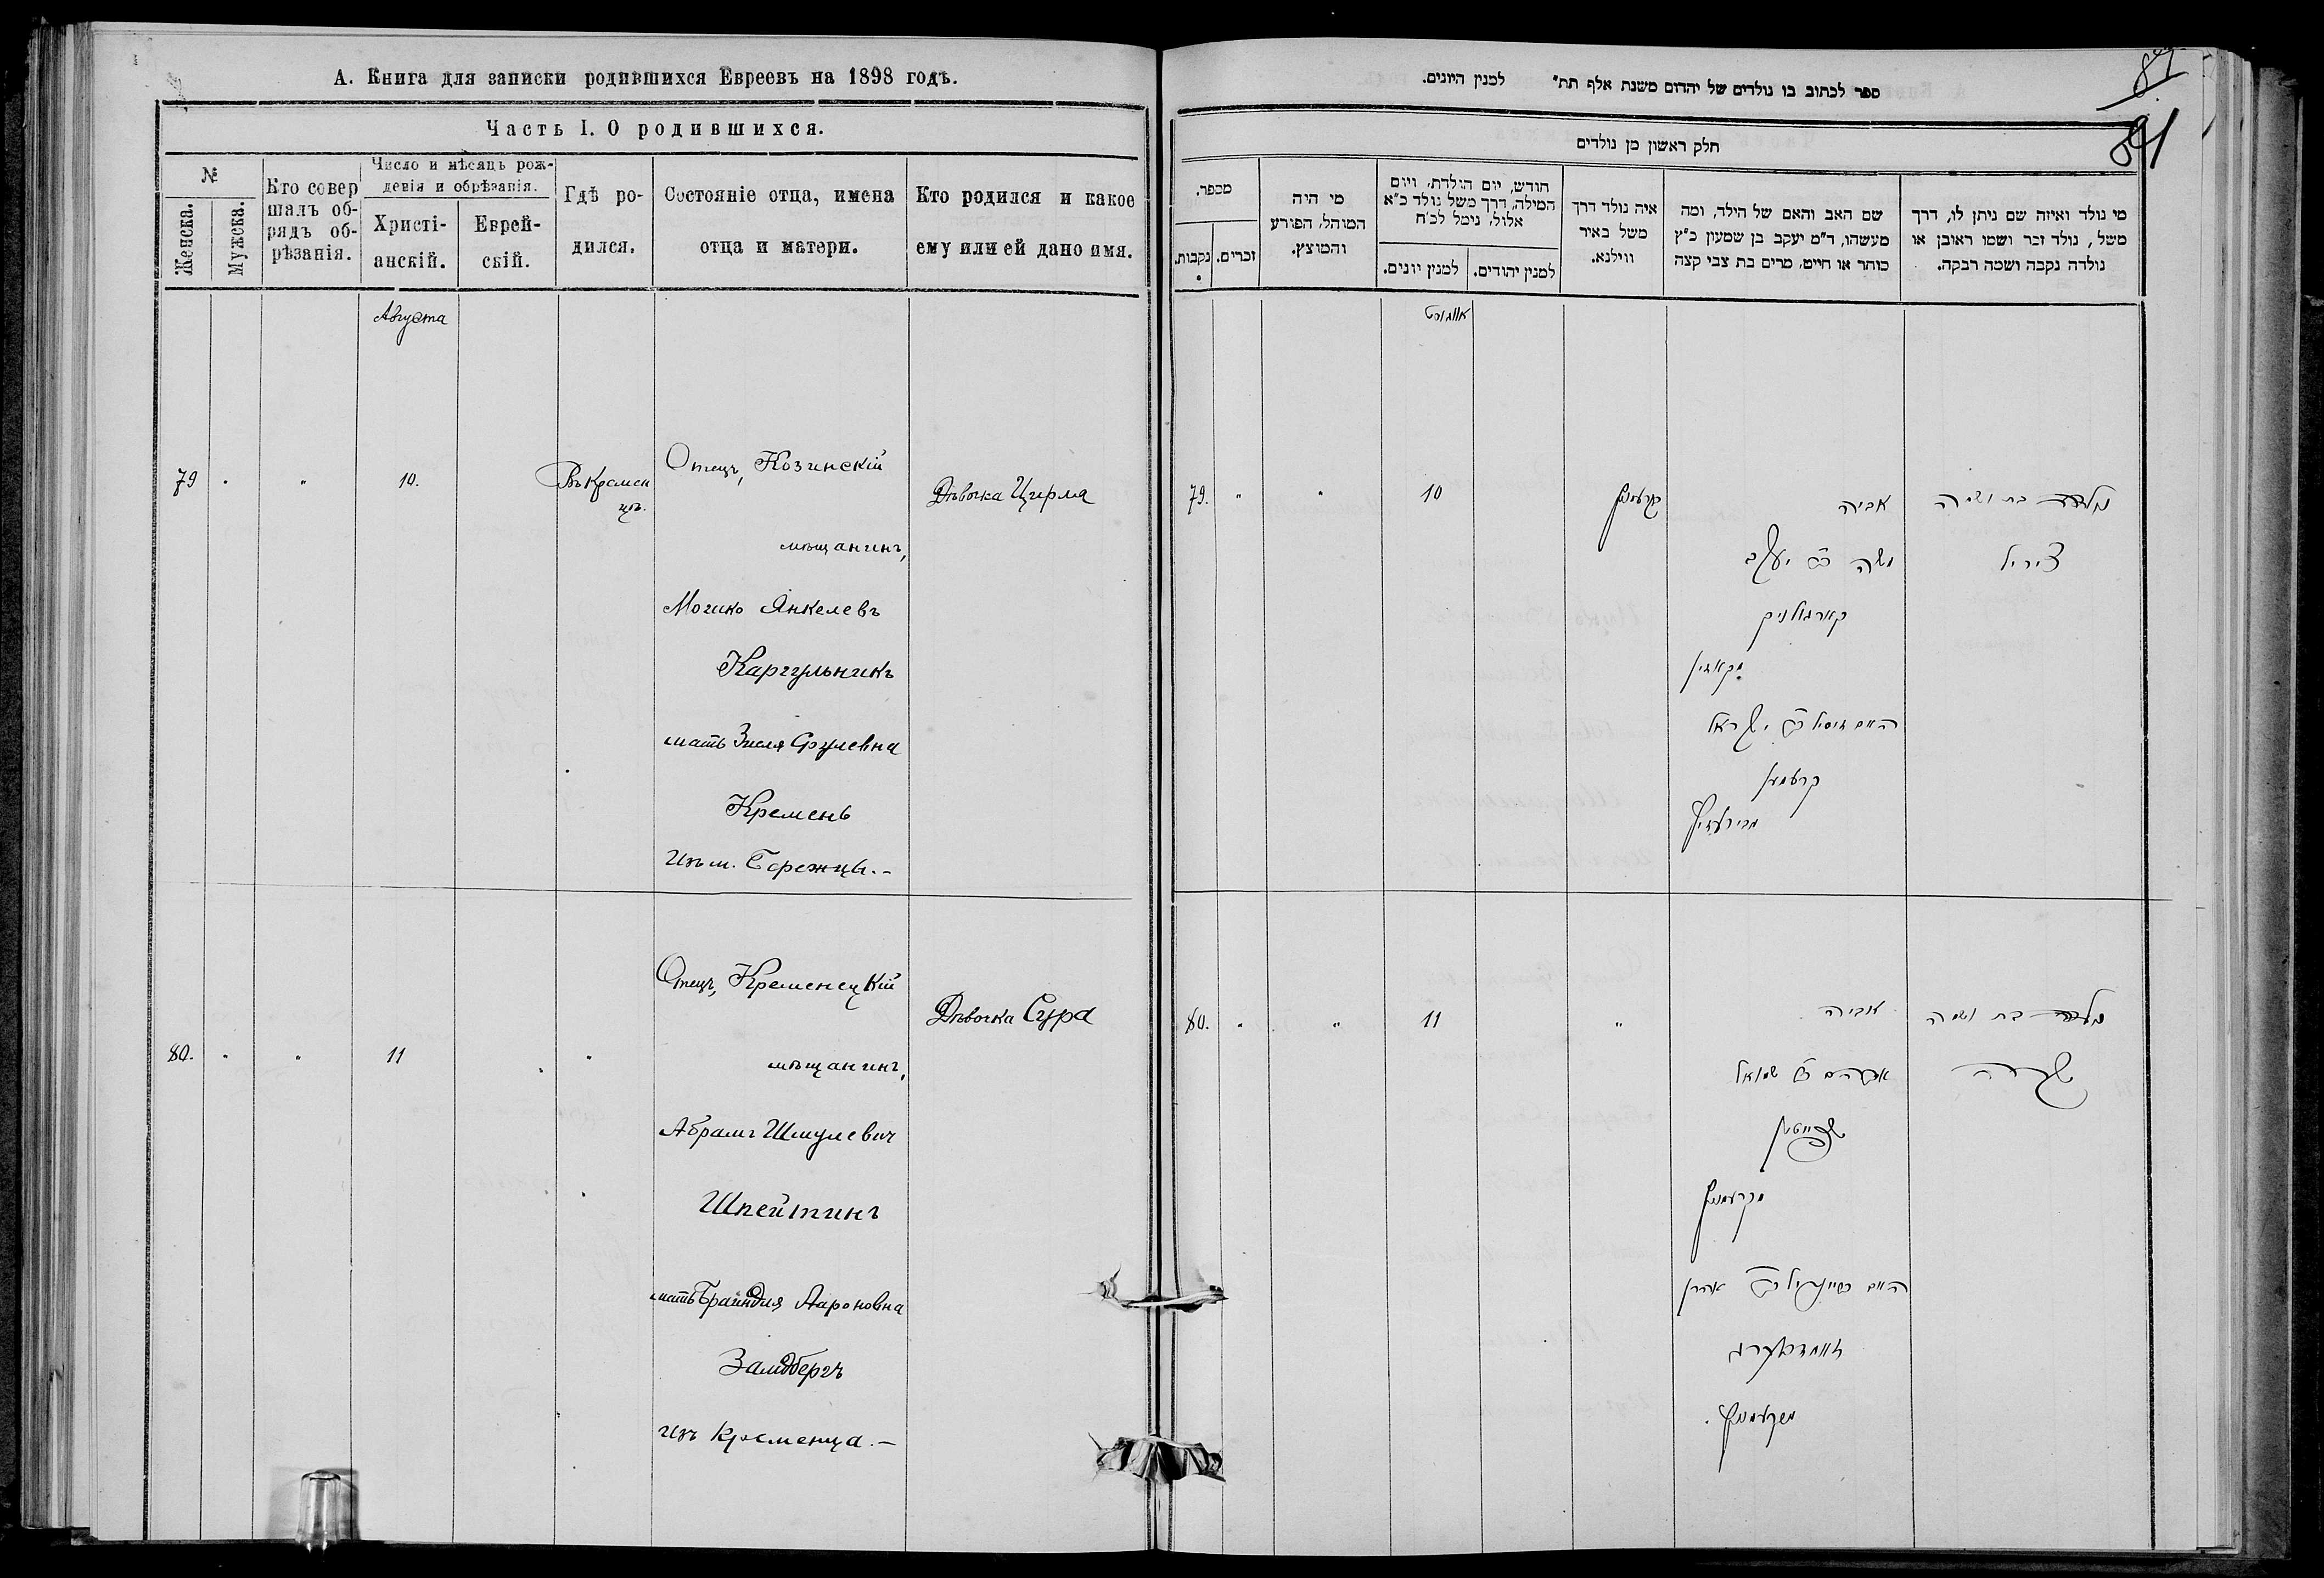 А. Книга для записки родившихся Евреевъ на 1898 годъ.
Часть I. О родившихся.
№
Женска.
Мужска.
Кто совер
шалъ об-
рядъ об-
рѣзанія.
Число и мѣсяцъ рож-
денія и обрѣзанія.
Христі-
анскій.
Еврей-
скій.
Гдѣ ро-
дился.
Состояніе отца, имена
отца и матери.
Кто родился и какое
ему или ей дано имя.
Августа
79
"
"
10.
Въ Кремен
цѣ.
Отецъ, Козинскій
мѣщанинъ,
Мошко Янкелевъ
Каргульникъ
мать Зиселя Срулевна
Кремень
изъ м. Бережцы.-
Дѣвочка Цирля
80.
"
"
11
"
"
Отецъ, Кременецкій
мѣщанинъ,
Абрамъ Шмулевич
Шпейтинъ
мать Брайндля Аароновна
Замдбергъ
изъ Кременца.-
Дѣвочка Сура
ספר לכתוב בו נולדים של יהדום משנת אלף תת״ למנין היונים.
84
חלק ראשון מן נולדים
מספר.
נקבות.
זכרים.
מי היה
המוהל, הפורע
והמוצץ.
חודש, יום הולדת, ויום
המילה, דרך משל נולד כ״א
אלול, נימל לכ״ח
למנין יונים.
למנין יהודים.
איה נולד דרך
משל באיר
ווילנא.
שם האב והאם של הילד, ומה
מעשהו, ד״מ יעקב בן שמעון כ״ץ
סוחר או חייט, מרים בת צבי קצה
מי נולד ואיזה שם ניתן לו, דרך
משל, נולד זכר ושמו ראובן או
נולדה נקבה ושמה רבקה.
אווגוסט
79.
"
"
10
קרעמניץ
אביה
משה ב״ר יעקב
קארגולניק
מקאזין
האם זיסיל ב״ר ישראל
קרעמען
נולדה בת ושמה
צירל
80.
"
"
11
"
אביה
אברהם ב״ר שמואל
שפייטין
מקרעמניץ
האם בריינדיל ב״ר אהרן
זאמדבערג
מקרעמניץ.
נולדה בת ושמה
שרה